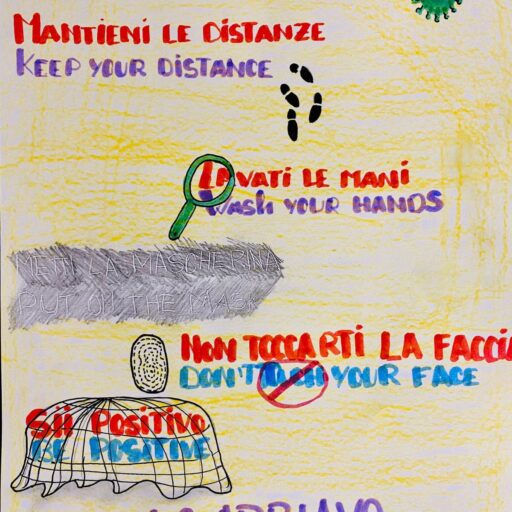 MANTIENI LE DISTANZE
KEEP YOUR DISTANCE
LAVATI LE MANI
WASh YOUR HANDS
METTI LA MASCHERINA
PUT ON THE MASK
NON TOCCARTI LA FACCIA
DON'T TOUCH YOUR FACE
Sii POSITIVO
BE POSITIVE